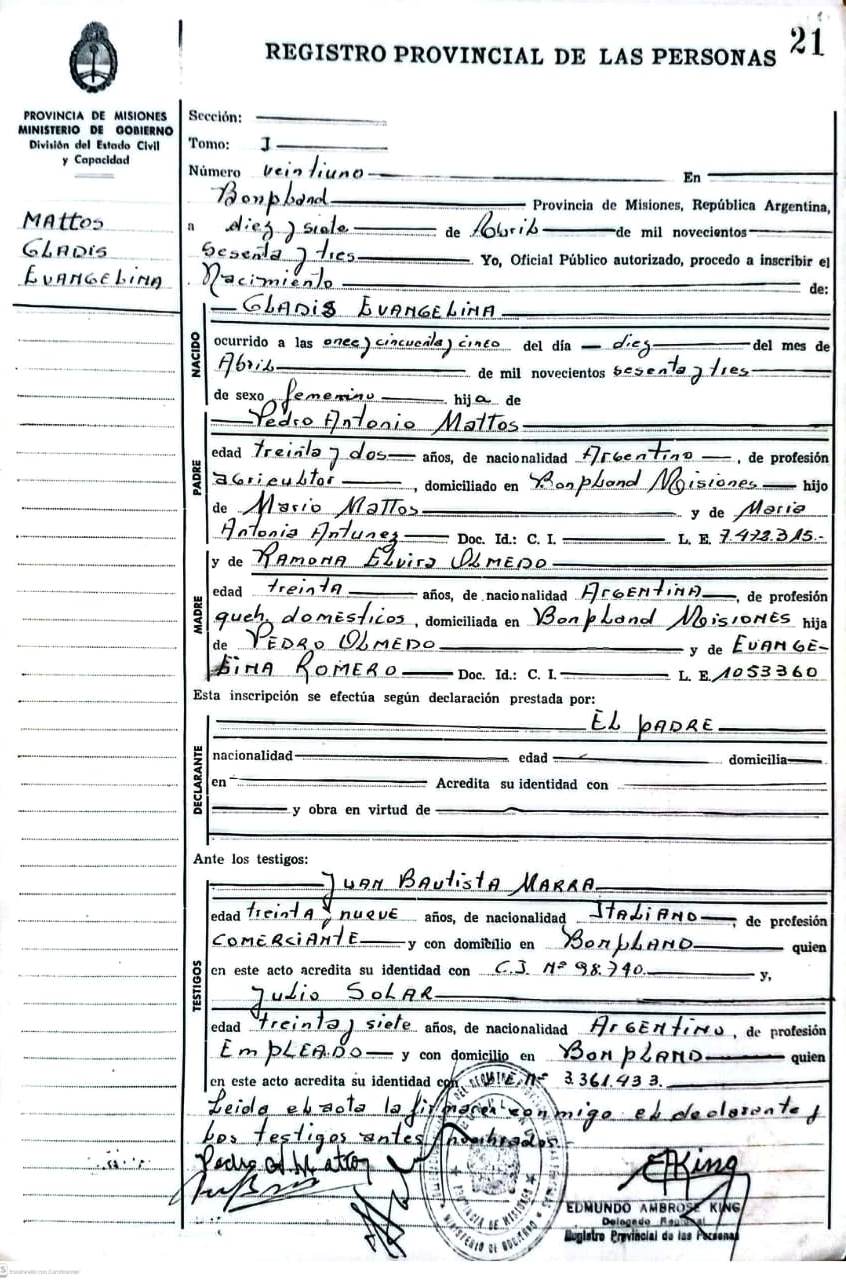 21
REGISTRO PROVINCIAL DE LAS PERSONAS
PROVINCIA DE MISIONES
MINISTERIO DE GOBIERNO
División del Estado Civil
y Capacidad
MATTOS
GLADIS
EVANGELINA
Sección:
Tomo: I
Número veintiuno En
Bonpland Provincia de Misiones, República Argentina,
a diez y siete de Abril de mil novecientos
sesenta y tres Yo, Oficial Público autorizado, procedo a inscribir el
Nacimiento de:
NACIDO
GLADIS EVANGELINA
ocurrido a las once y cincuenta y cinco del día diez del mes de
Abril de mil novecientos sesenta y tres
de sexo femenino hija de
PADRE
Pedro Antonio Mattos
edad treinta y dos años, de nacionalidad Argentino, de profesión
agricultor, domiciliado en Bonpland Misiones hijo
de Mario Mattos y de Maria
Antonia Antunez Doc. Id.: C. I. L. E. 7.472.315.-
MADRE
y de RAMONA Elvira OLMEDO
edad treinta años, de nacionalidad ARGENTINA, de profesión
queh. domésticos, domiciliada en Bonpland MISIONES hija
de PEDRO OLMEDO y de EVANGE-
LINA ROMERO Doc. Id.: C. I. L. E. 1053360
Esta inscripción se efectúa según declaración prestada por:
DECLARANTE
EL PADRE
nacionalidad edad domicilia
en Acredita su identidad con
y obra en virtud de
Ante los testigos:
TESTIGOS
JUAN BAUTISTA MARRA
edad treinta y nueve años, de nacionalidad ITALIANO, de profesión
COMERCIANTE y con domicilio en BONPLAND quien
en este acto acredita su identidad con C.I. Nº 98.740. y,
Julio SOLAR
edad treinta y siete años, de nacionalidad ARGENTINO, de profesión
EMPLEADO y con domicilio en BONPLAND quien
en este acto acredita su identidad con L.E. Nº 3.361.433.
Leida el acta la firman conmigo el declarante y
los testigos antes nombrados.-
Pedro A. Mattos
PROVINCIA DE MISIONES
MINISTERIO DE GOBIERNO
EKing
EDMUNDO AMBROSE KING
Delegado Regional
Registro Provincial de las Personas